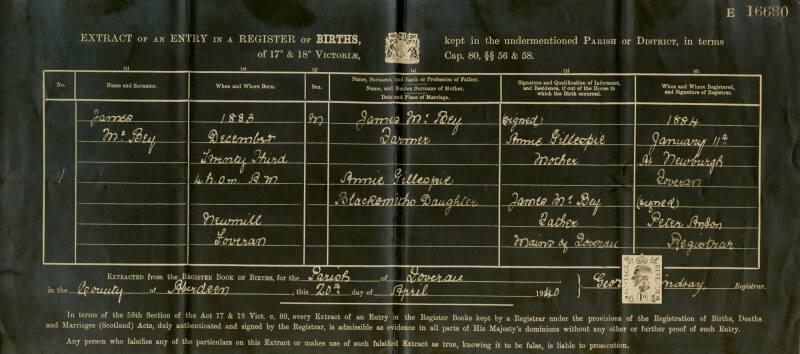 E 16630
EXTRACT OF AN ENTRY IN A REGISTER OF BIRTHS, kept in the undermentioned PARISH OR DISTRICT, in terms
of 17° & 18° VICTORIÆ, Cap. 80, §§ 56 & 58.
(1) (2) (3) (4) (5) (6)
No. Name and Surname. When and Where Born. Sex. Name, Surname, and Rank or Profession of Father. Name, and Maiden Surname of Mother. Date and Place of Marriage. Signature and Qualification of Informant, and Residence, if out of the House in which the Birth occurred. When and Where Registered, and Signature of Registrar.
James 1883 M James Mc Bey (Signed) 1884
Mc Bey December Farmer Annie Gillespie January 11th
Twenty Third Mother At Newburgh
1 4.h.0m. A.M Annie Gillespie Foveran
Blacksmiths Daughter James Mc Bey (signed)
Newmill Father Peter Anton
Foveran Mains of Foveran Registrar
EXTRACTED from the REGISTER BOOK OF BIRTHS, for the Parish of Foveran
in the County of Aberdeen, this 20th day of April 1940 } Geor indsay Registrar.
POSTAGE REVENUE
In terms of the 58th Section of the Act 17 & 18 Vict. c. 80, every Extract of an Entry in the Register Books kept by a Registrar under the provisions of the Registration of Births, Deaths
and Marriages (Scotland) Acts, duly authenticated and signed by the Registrar, is admissible as evidence in all parts of His Majesty's dominions without any other or further proof of such Entry.
Any person who falsifies any of the particulars on this Extract or makes use of such falsified Extract as true, knowing it to be false, is liable to prosecution.